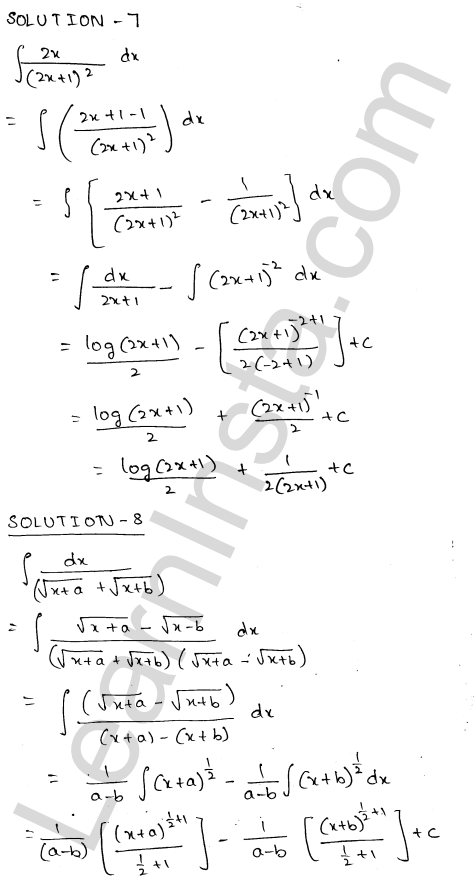 SOLUTION - 7
∫ 2x/(2x+1)² dx
= ∫ ( (2x+1-1)/(2x+1)² ) dx
= ∫ [ (2x+1)/(2x+1)² - 1/(2x+1)² ] dx
= ∫ dx/(2x+1) - ∫ (2x+1)⁻² dx
= log(2x+1)/2 - [ (2x+1)⁻²⁺¹/(2(-2+1)) ] + C
= log(2x+1)/2 + (2x+1)⁻¹/2 + C
= log(2x+1)/2 + 1/(2(2x+1)) + C
SOLUTION - 8
∫ dx/(√(x+a) + √(x+b))
= ∫ (√(x+a) - √(x-b))/((√(x+a) + √(x+b)) (√(x+a) - √(x+b))) dx
= ∫ (√(x+a) - √(x+b))/((x+a) - (x+b)) dx
= 1/(a-b) ∫ (x+a)^(1/2) - 1/(a-b) ∫ (x+b)^(1/2) dx
= 1/(a-b) [ (x+a)^(1/2+1)/(1/2+1) ] - 1/(a-b) [ (x+b)^(1/2+1)/(1/2+1) ] + C
LearnInsta.com